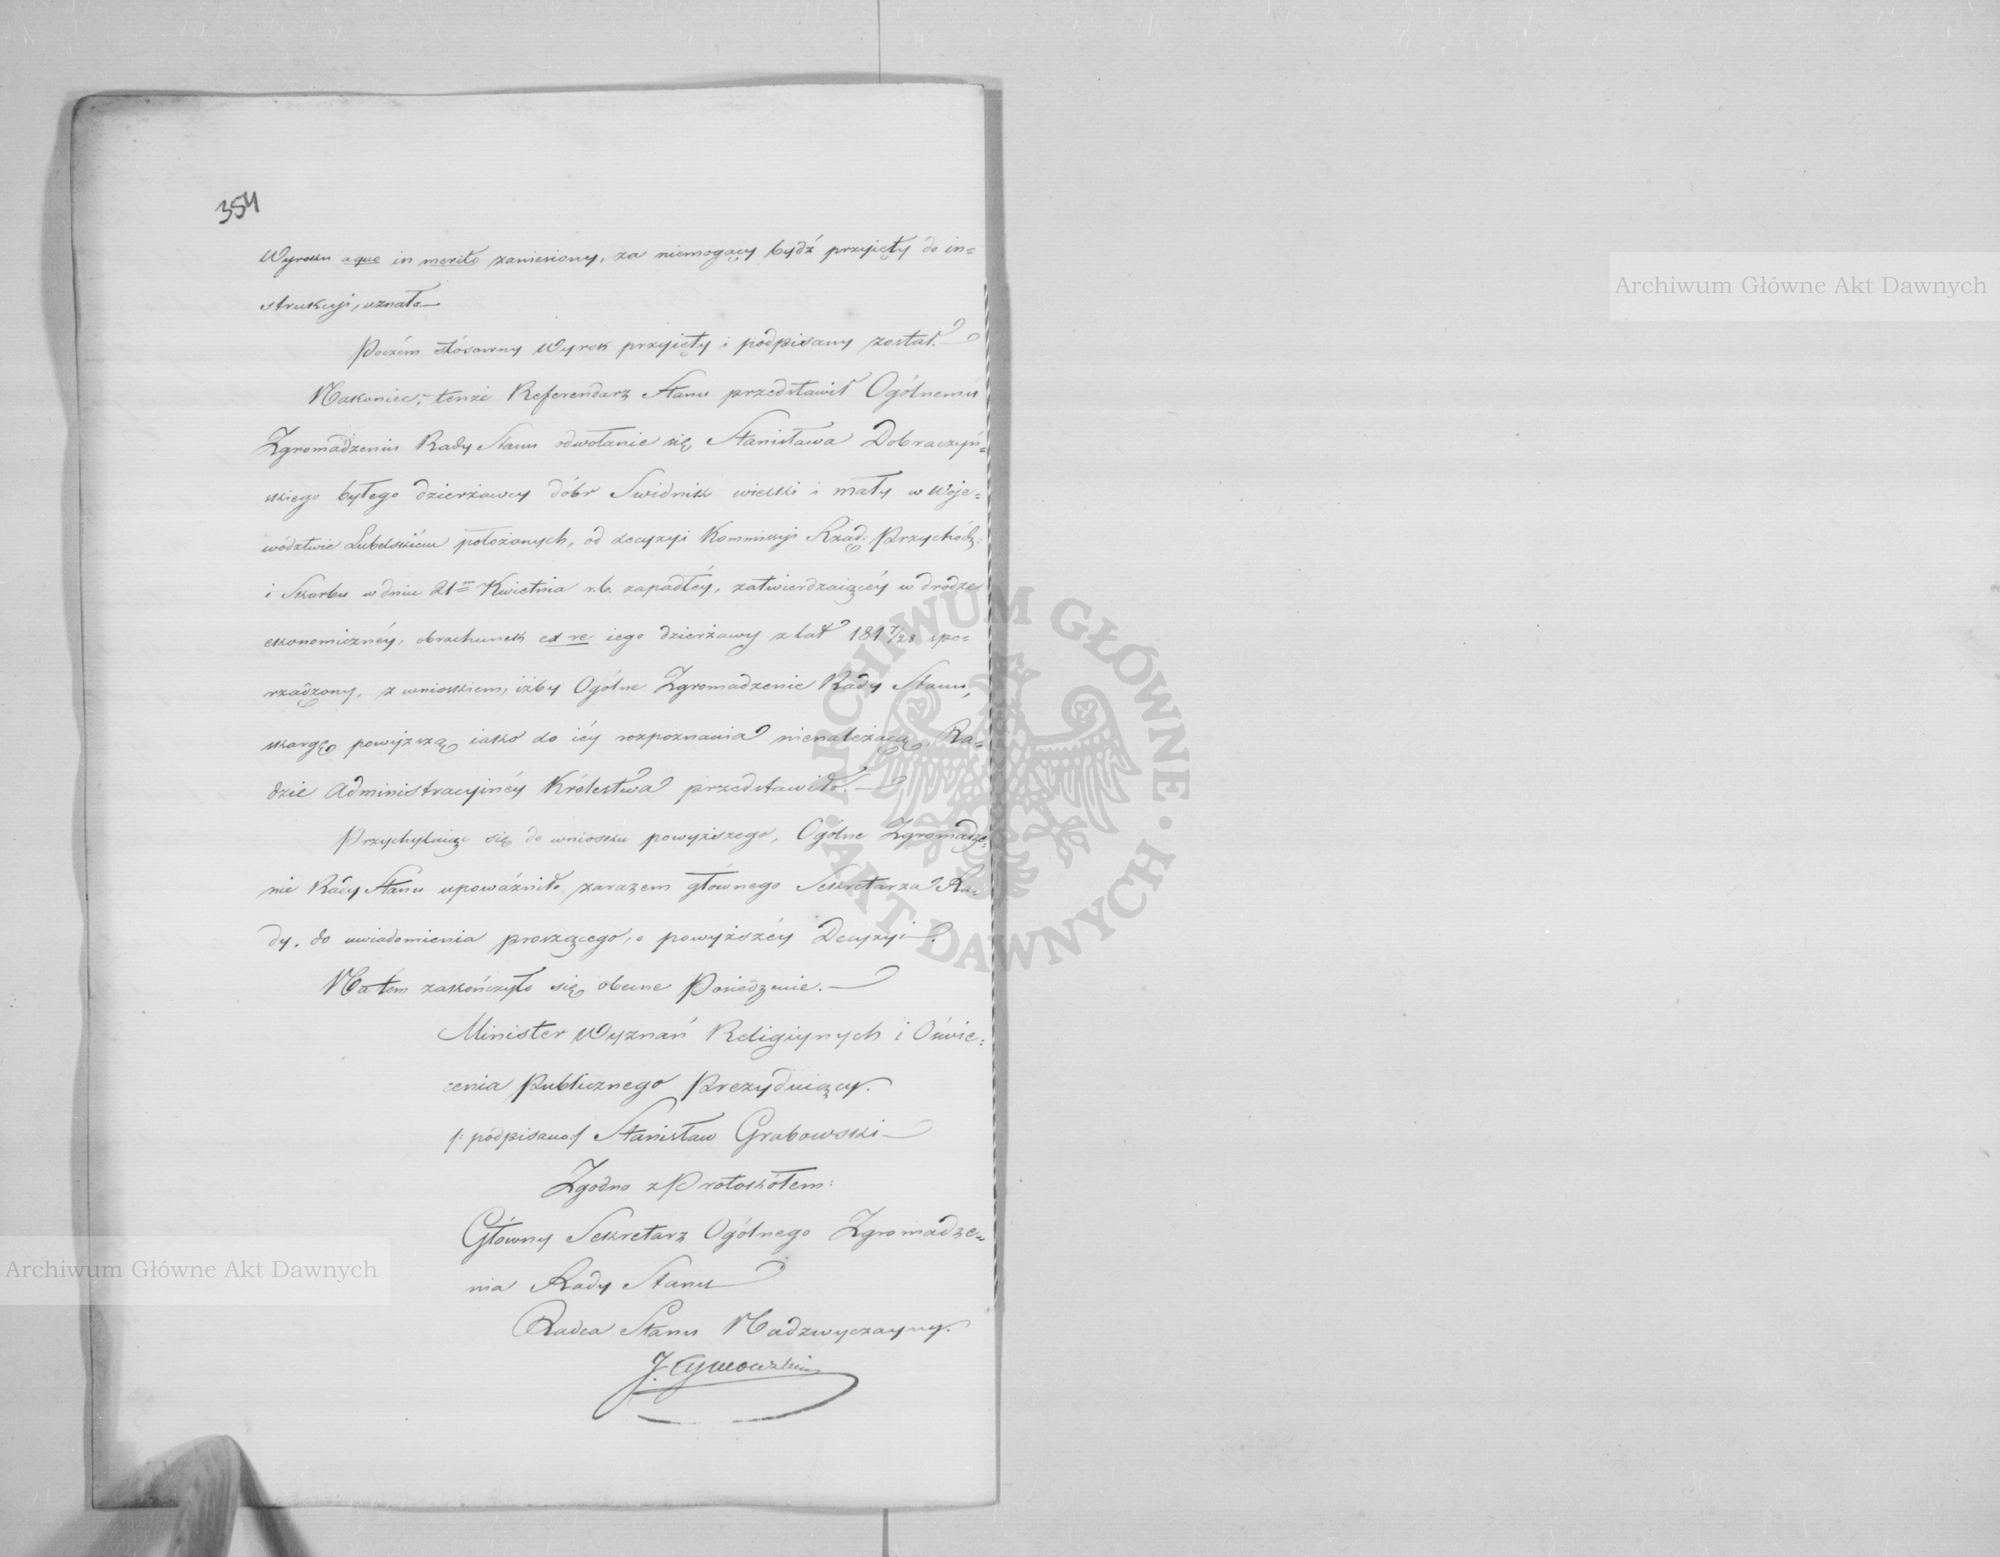 354
Wyroku a quo in merito zaniesiony, za niemogący bydź przyięty do in=
strukcyi, uznało.—
Poczém stósowny Wyrok przyięty i podpisany został.—
Nakoniec, tenże Referendarz Stanu przedstawił Ogólnemu
Zgromadzeniu Rady Stanu odwołanie się Stanisława Dobraczyń=
skiego byłego dzierżawcy dóbr Swidnik wielki i mały w Woje=
wództwie Lubelskiém położonych, od decyzyi Kommissyi Rząd: Przychód:
i Skarbu w dniu 21m Kwietnia r.b. zapadłéy, zatwierdzaiącéy w drodze
ekonomicznéy, obrachunek ex re iego dzierżawy z lat 1817/28 spo=
rządzony, z wnioskiem, iżby Ogólne Zgromadzenie Rady Stanu,
skargę powyższą iako do iéy rozpoznania nienależącą, Ra=
dzie Administracyinéy Królestwa przedstawiło.—
Przychylaiąc się do wniosku powyższego, Ogólne Zgromadze=
nie Rady Stanu upoważniło zarazem głównego Sekretarza Ra=
dy, do uwiadomienia proszącego, o powyższéy Decyzyi.
Na tém zakończyło się obecne Posiedzenie.—
Minister Wyznań Religiynych i Oświe=
cenia Publicznego Prezyduiący.
/: podpisano:/ Stanisław Grabowski—
Zgodno z Protokółem:
Główny Sekretarz Ogólnego Zgromadze=
nia Rady Stanu
Radca Stanu Nadzwyczayny.
J. Tymowski
Archiwum Główne Akt Dawnych
Archiwum Główne Akt Dawnych
ARCHIWUM GŁÓWNE
AKT DAWNYCH